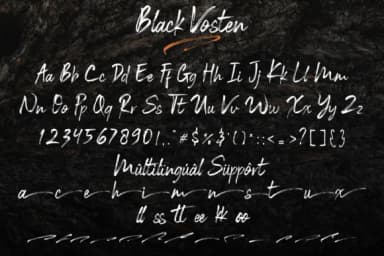 Black Vosten
Aa Bb Cc Dd Ee Ff Gg Hh Ii Jj Kk Ll Mm
Nn Oo Pp Qq Rr Ss Tt Uu Vv Ww Xx Yy Zz
1234567890!,.^#$%&'()*:;<=>?[]{}
Múltílíngúál Süppört
a c e h i m n s t u x
ll ss tt ee kk oo